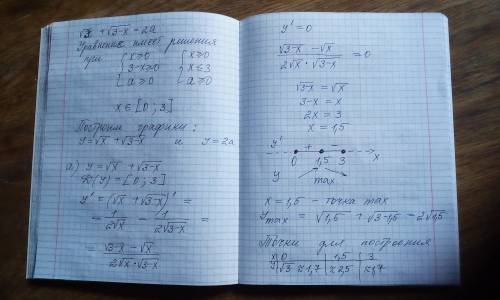 √x + √3-x = 2a
Уравнение имеет решения
при { x ≥ 0 { x ≥ 0
3-x ≥ 0 x ≤ 3
a ≥ 0 a ≥ 0
x ∈ [0 ; 3]
Построим графики:
y = √x + √3-x и y = 2a
а) y = √x + √3-x
D(y) = [0 ; 3]
y' = (√x + √3-x)' =
= 1/2√x - 1/2√3-x =
= √3-x - √x / 2√x · √3-x
y' = 0
√3-x - √x / 2√x · √3-x = 0
√3-x = √x
3-x = x
2x = 3
x = 1,5
y' + -
0 1,5 3 x
y max
x = 1,5 - точка max
y max = √1,5 + √3-1,5 = 2√1,5
Точки для построения
x 0 | 1,5 | 3
y √3 ≈ 1,7 | ≈ 2,5 | ≈ 1,7